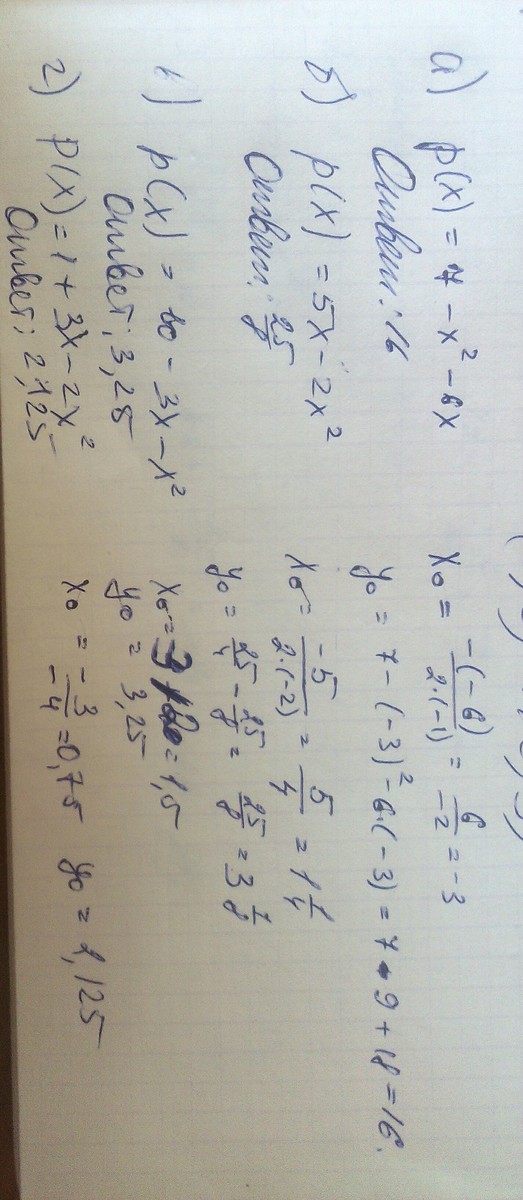 а) p(x) = 7 - x² - 6x
x₀ = -(-6)/2·(-1) = 6/-2 = -3
Ответ: 16
y₀ = 7 - (-3)² - 6·(-3) = 7 - 9 + 18 = 16.
б) p(x) = 5x - 2x²
x₀ = -5/2·(-2) = 5/4 = 1 1/4
Ответ: 25/8
y₀ = 25/4 - 25/8 = 25/8 = 3 1/8
в) p(x) = 10 - 3x - x²
x₀ = = 1,5
Ответ: 3,25
y₀ = 3,25
г) P(x) = 1 + 3x - 2x²
x₀ = -3/-4 = 0,75 y₀ = 2,125
Ответ: 2,125